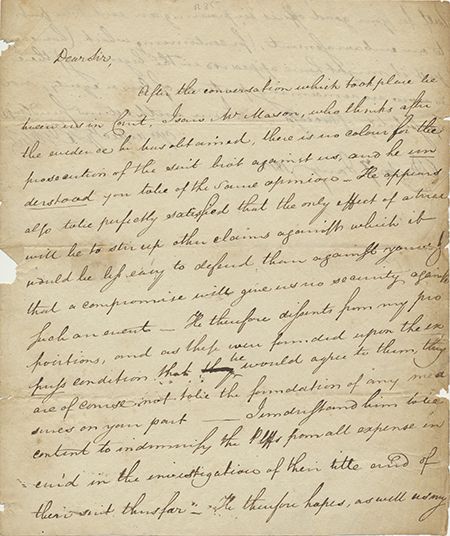 Dear Sir,
After the conversation which took place be
tween us in Court, I saw Mr. Mason, who thinks after
the evidence he has obtained, there is no colour for the
prosecution of the suit brot against us, and he un
derstood you to be of the same opinion — He appears
also to be perfectly satisfied that the only effect of a trial
will be to stir up other claims against which it
would be less easy to defend than against yours &
that a compromise will give us no security against
such an event — He therefore dissents from my pro
positions, and as these were founded upon the ex
press condition that he would agree to them, they
are of course not to be the foundation of any mea
sures on your part — I understand him to be
content to indemnify the Plffs from all expense in
cur'd in the investigation of their title and of
their suit thus far — He therefore hopes, as well as my